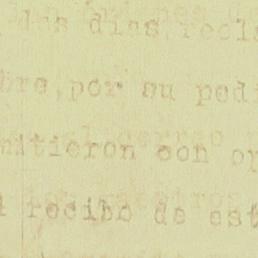 dos dias recla
bre, por su pedi
mitieron con op
recibo de est